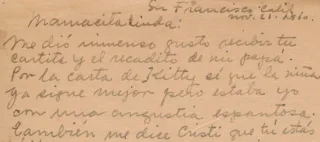 Sn Francisco Calif.
nov. 21.
Mamacita linda:
Me dió inmenso gusto recibir tu
cartita y el recadito de mi papá.
Por la carta de Kitty sé que la niña
ya sigue mejor pero estaba yo
con una angustia espantosa.
También me dice Cristi que tú estás